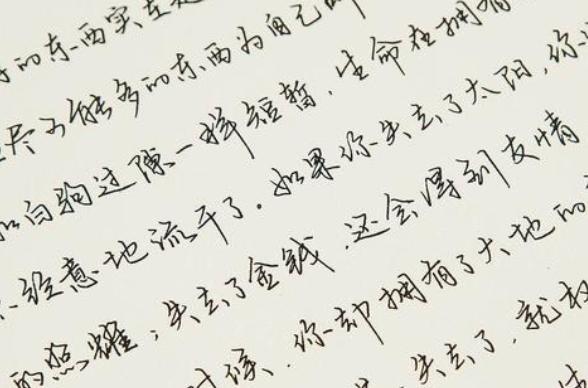 的东西实在是
尽可能多的东西为自己所
如白驹过隙一样短暂,生命在拥有
经意地流干了。如果你失去了太阳,你
的照耀;失去了金钱,还会得到友情
时候,你却拥有了大地的
失去了,就